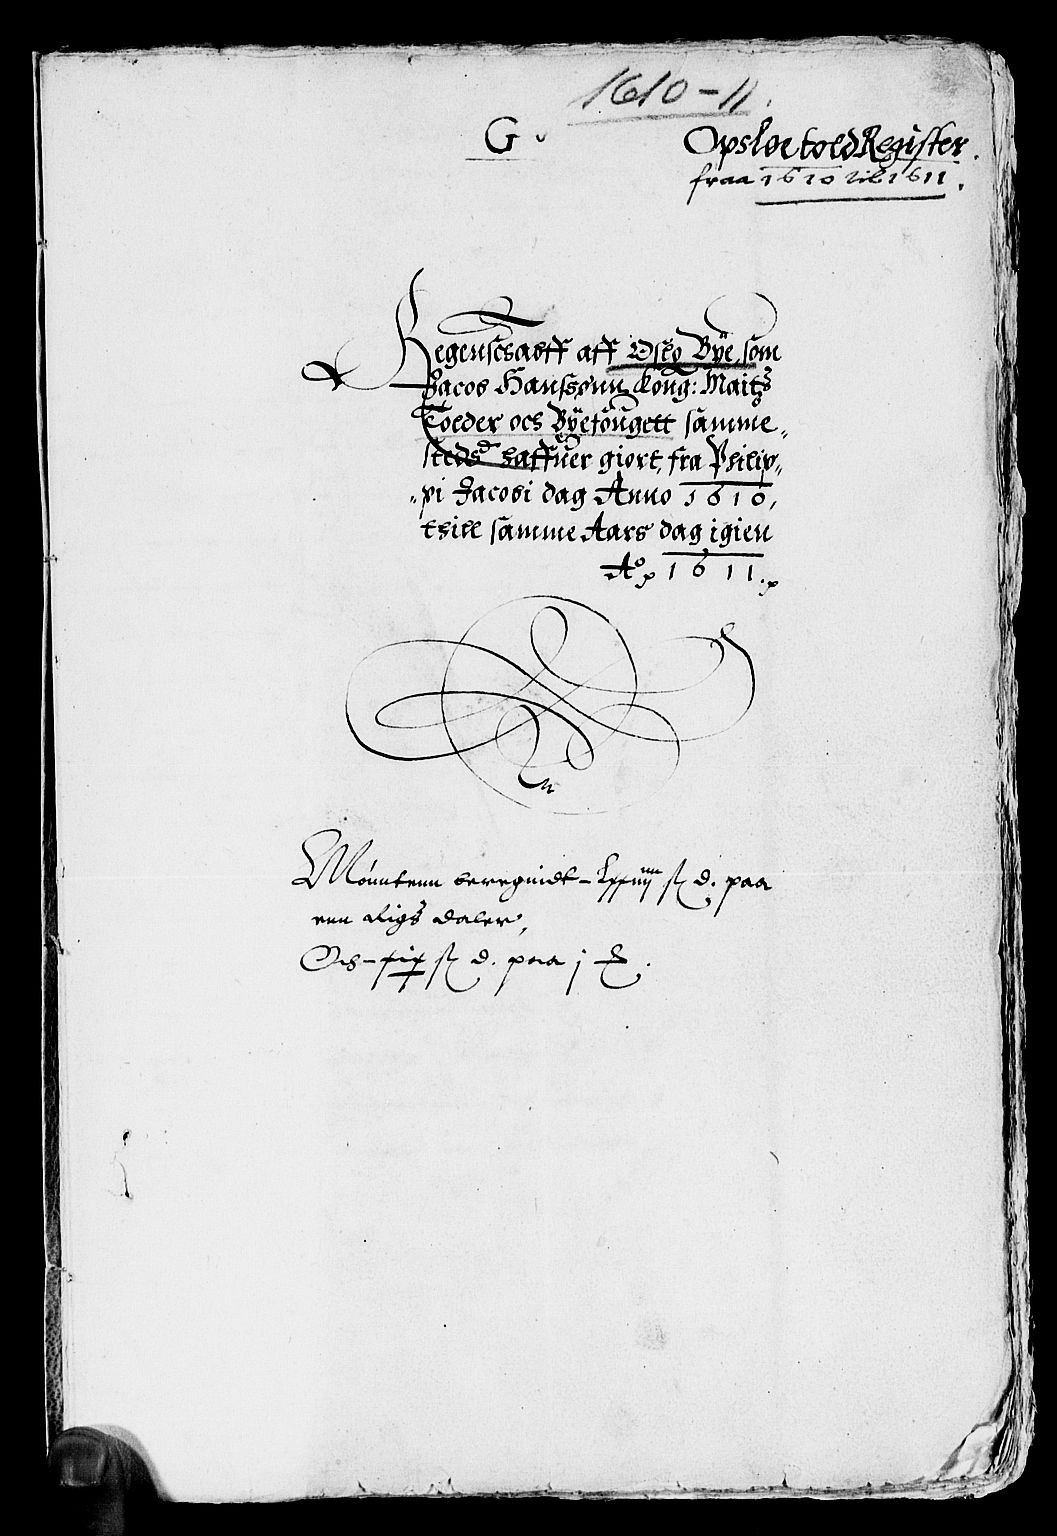 1610-11.
G.
Opsloe told Register.
fraa 1610 til 1611.
Regenschabff aff Oslo Bÿe, som
Jacob Hanssønn Kong: Maitz
Tolder och Bÿefougett samme-
stedz haffuer giort, fra Philip-
pi Jacobi dag Anno 1610,
thill samme Aars dag igien
Ao 1611.
Mønntenn beregnidt - ß d. paa
enn Rigs daler,
Och - ß d. paa j